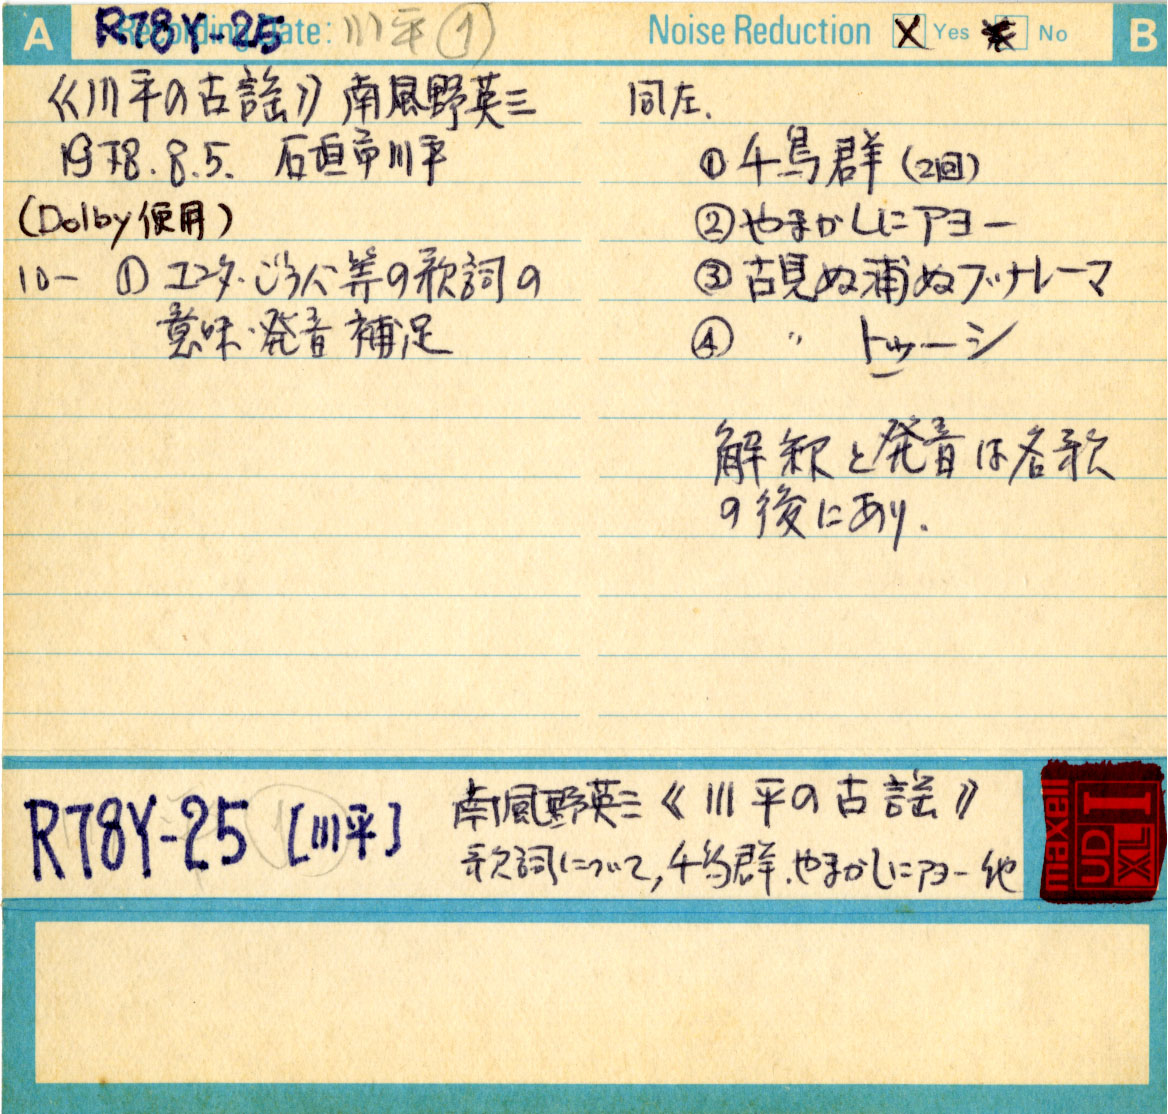 A R78Y-25 Recording Date: 川平 ① Noise Reduction X Yes No B
《川平の古謡》 南風野英三
1978.8.5. 石垣市川平
(Dolby使用)
10- ① ユンタ・じらば等の歌詞の
意味・発音 補足
同左.
① 千鳥群 (2回)
② やまかしにアヨー
③ 古見ぬ浦ぬブナレーマ
④ 〃 トゥーシ
解釈と発音は各歌
の後にあり.
R78Y-25 [川平]
南風野英三《川平の古謡》
歌詞について, 千鳥群.やまかしにアヨー 他
maxell UD XL I